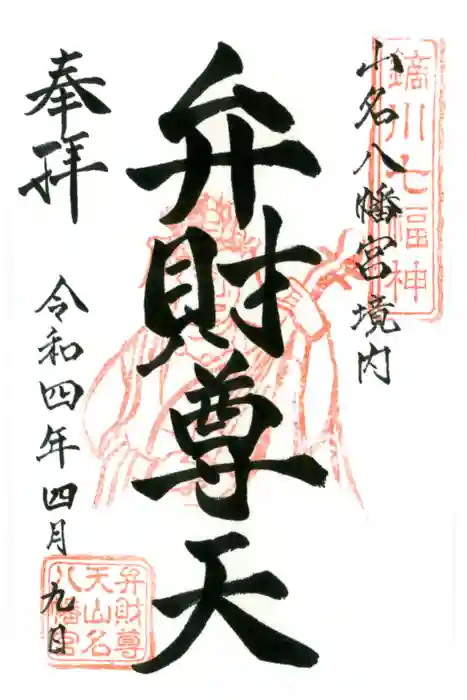 鏑川七福神
山名八幡宮境内
弁財尊天
奉拝
令和四年四月九日
弁財尊
天山名
八幡宮